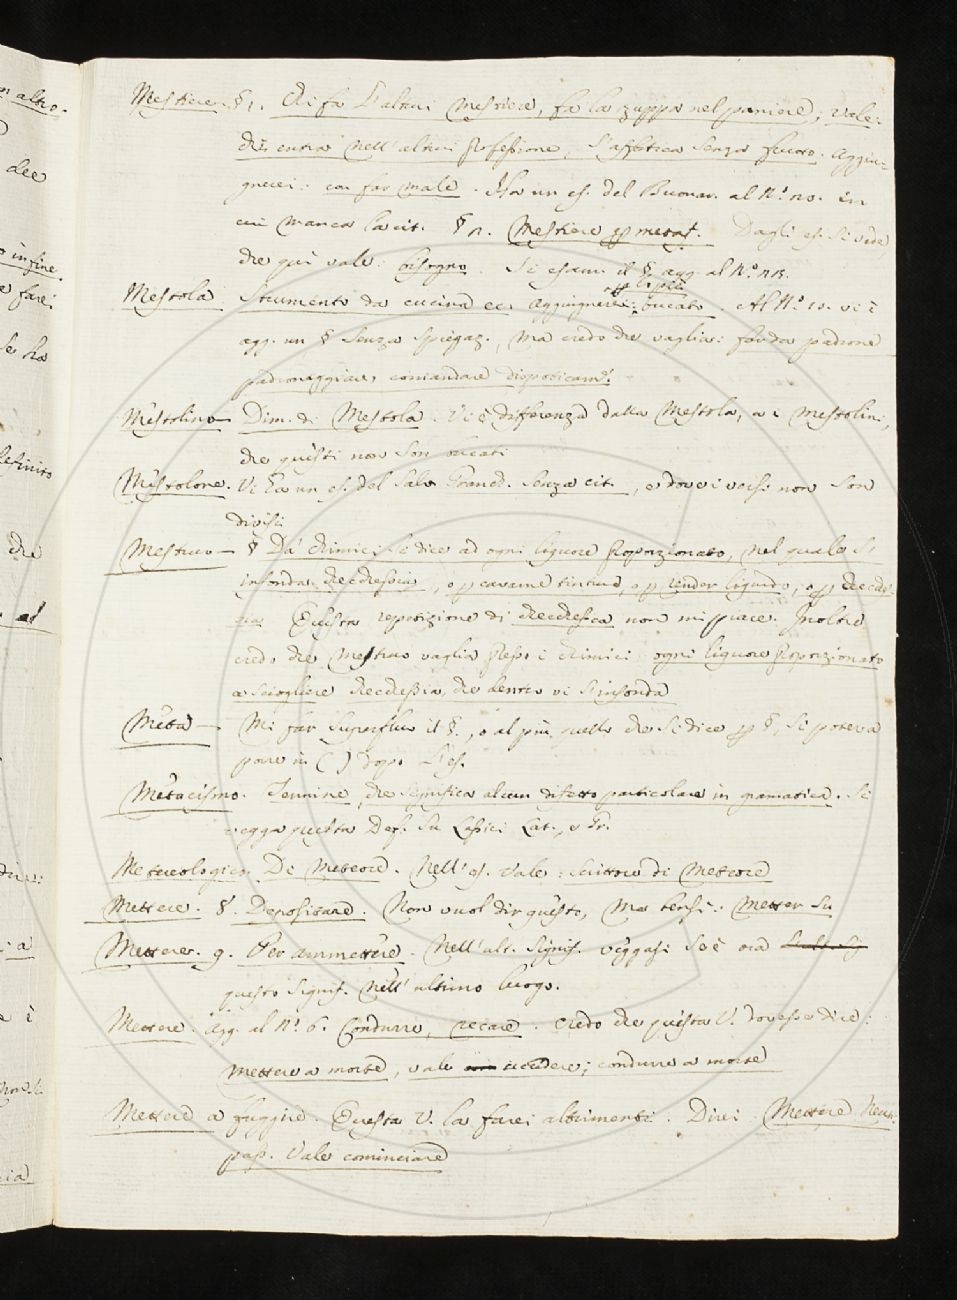 Mestiere. §1. Chi fa l'altrui mestiere, fa la zuppa nel paniere; vale:
chi entra nell'altrui professione, s'affatica senza frutto. Aggiu-
gnerei: con far male. Ha un es. del Buonar. al N.° 20. in
cui manca la cit. § 2. Mestiere p metaf. Dagli es. si vede
che qui vale: bisogno. Si esam. il § agg. al N.° 213.
Mestola. Strumento da cucina ec. Aggiugnerei: bucato. Al N.° 10. vi è
agg. un § senza spiegaz., ma credo che vaglia: far da padrone
padroneggiare, comandare dispoticam.e
Mestolino — Dim. di Mestola. Vi è differenza dalla Mestola, a i Mestolini,
che questi non son bucati
Mestolone. Vi ha un es. del Salv. Granch. senza cit., e dove i versi non son
divisi
Mestruo — § Da' chimici si dice ad ogni liquore proporzionato, nel quale s'
infonda checchessia, o p cavarne tintura, o p render liquido, o p checches-
sia Questa repetizione di checchessia non mi piace. Inoltre
credo che Mestruo vaglia presso i chimici ogni liquore proporzionato
a sciogliere checchessia, che dentro vi s'infonda
Meta — Mi par superfluo il §., o al più quello che si dice p §, si poteva
porre in ( ) dopo l'es.
Metacismo. Termine, che significa alcun difetto particolare in gramatica. Si
vegga questa Def. su Lessici Lat., e Gr.
Metereologico. Di Meteore. Nell'es. vale: scrittore di Meteore
Mettere. §. Depositare. Non vuol dir questo, ma bensì: Metter su
Mettere. 9. Per ammettere. Nell'alt. signif. veggasi se è ora
questo signif. nell'ultimo luogo.
Mettere. Agg. al N.° 6. Condurre, recare. Credo che questa V. dovesse dire:
Mettere a morte, vale uccidere; condurre a morte
Mettere a fuggire. Questa V. la farei altrimenti. Direi. Mettere Neut.
pass. Vale cominciare